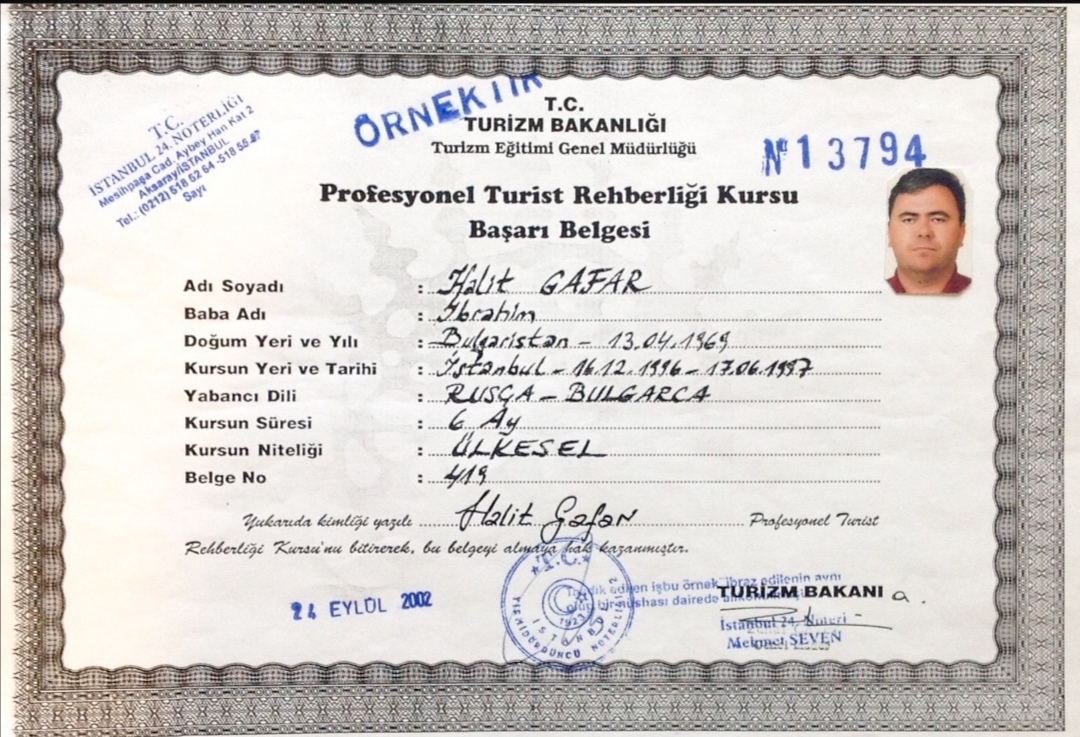 T.C.
İSTANBUL 24. NOTERLİĞİ
Mesihpaşa Cad. Aybey Han Kat 2
Aksaray/İSTANBUL
Tel.: (0212) 518 62 64 - 518 55
Sayı
ÖRNEKTİR
T.C.
TURİZM BAKANLIĞI
Turizm Eğitimi Genel Müdürlüğü
№ 13794
Profesyonel Turist Rehberliği Kursu
Başarı Belgesi
Adı Soyadı : Halit GAFAR
Baba Adı : İbrahim
Doğum Yeri ve Yılı : Bulgaristan - 13.04.1969
Kursun Yeri ve Tarihi : İstanbul - 16.12.1996 - 17.06.1997
Yabancı Dili : RUSÇA - BULGARCA
Kursun Süresi : 6 Ay
Kursun Niteliği : ÜLKESEL
Belge No : 419
Yukarıda kimliği yazılı Halit Gafar Profesyonel Turist
Rehberliği Kursu'nu bitirerek, bu belgeyi almaya hak kazanmıştır.
24 EYLÜL 2002
T.C.
İSTANBUL
1923
YİRMİDÖRDÜNCÜ NOTERLİĞİ
edilen işbu örnek ibraz edilenin aynı
bir nüshası dairede
TURİZM BAKANI a.
İstanbul 24. Noteri
Mehmet SEVEN